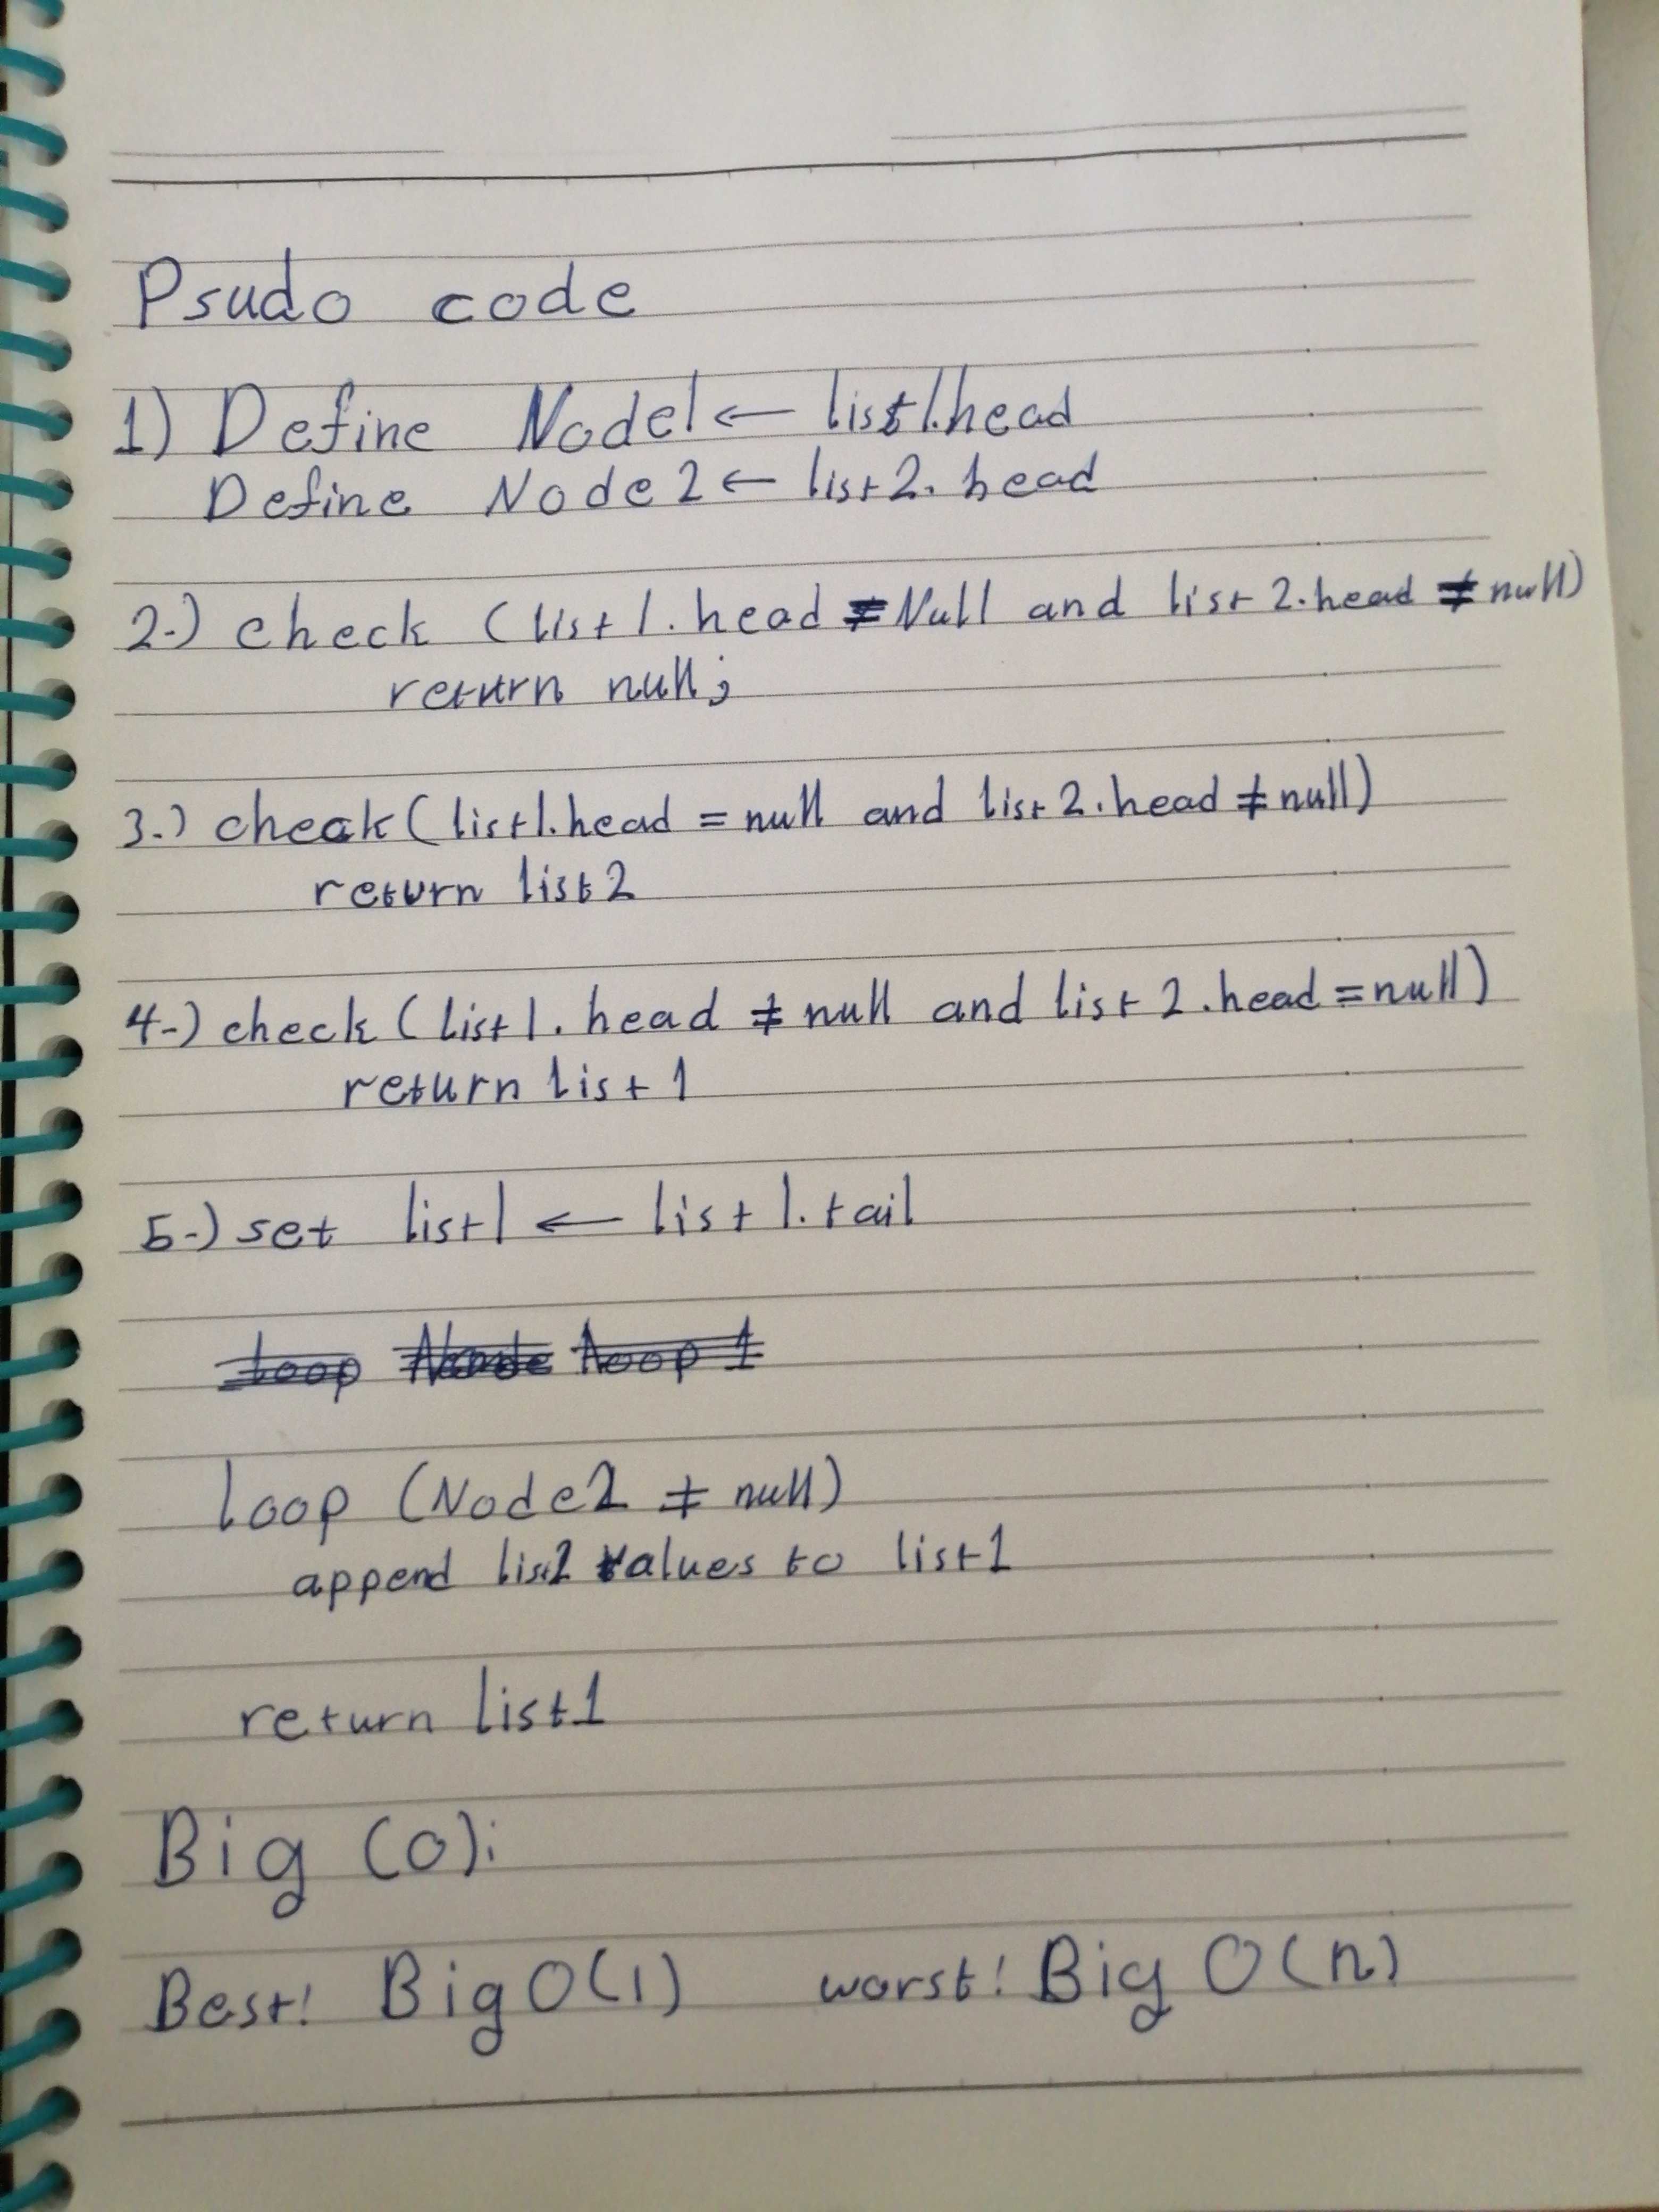 Psudo code
1) Define Node1 ← list1.head
Define Node2 ← list2.head
2-) check (list1.head ≠ Null and list2.head ≠ null)
return null;
3-) check (list1.head = null and list2.head ≠ null)
return list2
4-) check (list1.head ≠ null and list2.head = null)
return list1
5-) set list1 ← list1.tail
loop Node loop 1
loop (Node2 ≠ null)
append list2 values to list1
return list1
Big (O):
Best! Big O(1) worst! Big O(n)